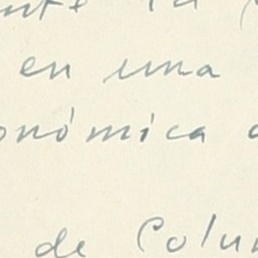 en una
onómica
de Colum